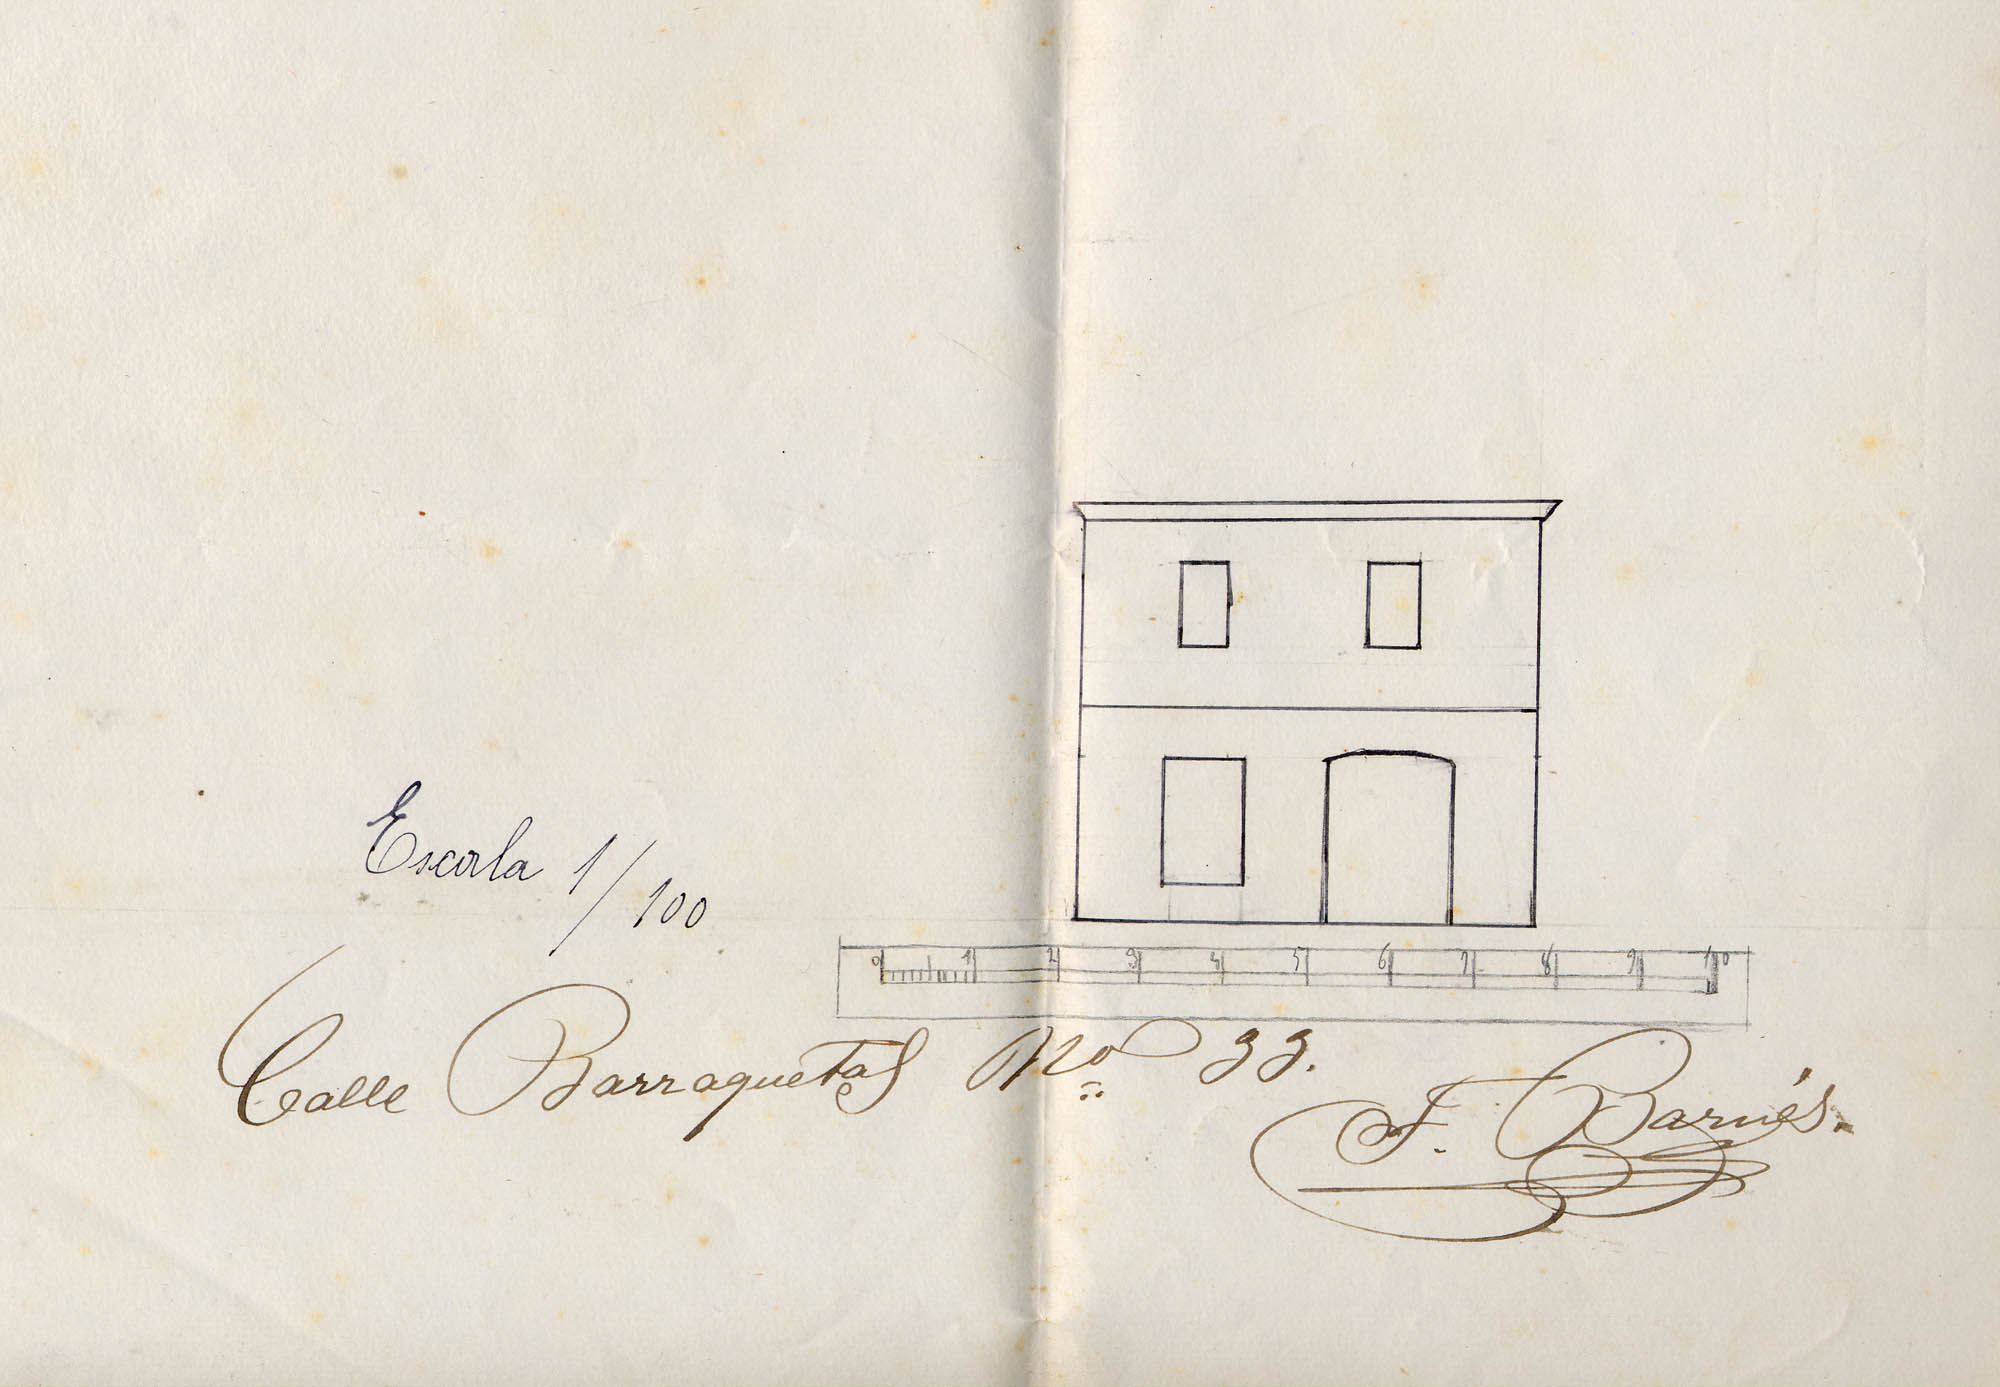 Escala 1/100
0 1 2 3 4 5 6 7 8 9 10
Calle Barraquetas No 33.
F. Barnés.